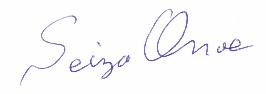 Seizo Onoe